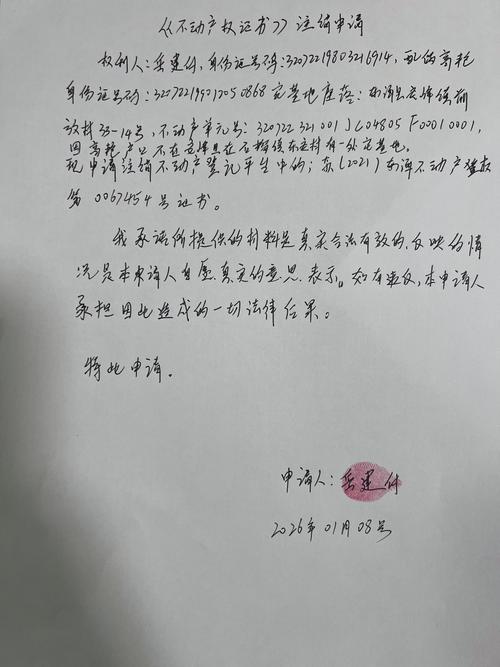 《不动产权证书》注销申请
权利人:岳建付,身份证号码:32072219803216914,配偶高艳
身份证号码:320722195010050868宅基地座落:东海县安峰镇前
放村33-14号,不动产单元号:320722321001JC04805F00010001,
因高艳户口不在安峰且在石榴镇东安村有一处宅基地。
现申请注销不动产登记平生中的;苏(2021)东海不动产权
第0067454号证书。
我承诺所提供的材料是真实合法有效的,反映的情
况是本申请人自愿、真实的意思表示。如有违反,本申请人
承担因此造成的一切法律后果。
特此申请。
申请人:岳建付
2026年01月08号